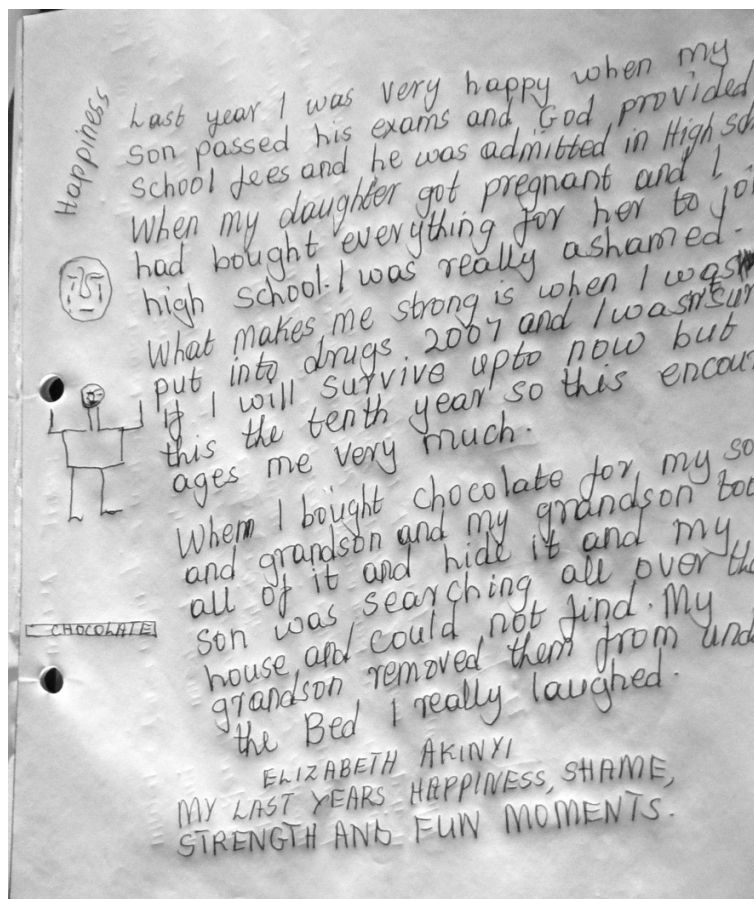 Happiness
Last year I was very happy when my
son passed his exams and God provided
school fees and he was admitted in High sch
When my daughter got pregnant and I
had bought everything for her to joi
high school. I was really ashamed.
What makes me strong is when I was
put into drugs 2007 and I wasn't sur
if I will survive upto now but
this the tenth year so this encour
ages me very much.
When I bought chocolate for my so
and grandson and my grandson too
all of it and hide it and my
son was searching all over the
house and could not find. My
grandson removed them from und
the Bed I really laughed.
CHOCOLATE
ELIZABETH AKINYI
MY LAST YEARS HAPPINESS, SHAME,
STRENGTH AND FUN MOMENTS.